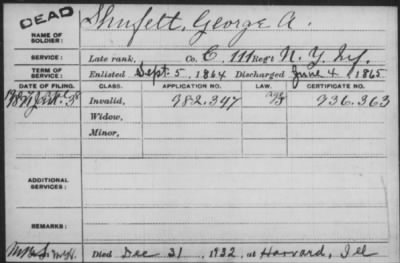 DEAD
NAME OF SOLDIER: Shufelt, George A.
SERVICE: Late rank, Co. C. 111 Reg't N. Y. Inf.
TERM OF SERVICE: Enlisted Sept. 5, 1864 Discharged June 4, 1865
DATE OF FILING. CLASS. APPLICATION NO. LAW. CERTIFICATE NO.
Invalid, 982.347 736.363
Widow,
Minor,
ADDITIONAL SERVICES:
REMARKS:
Died Dec 31, 1932, at Harvard, Ill